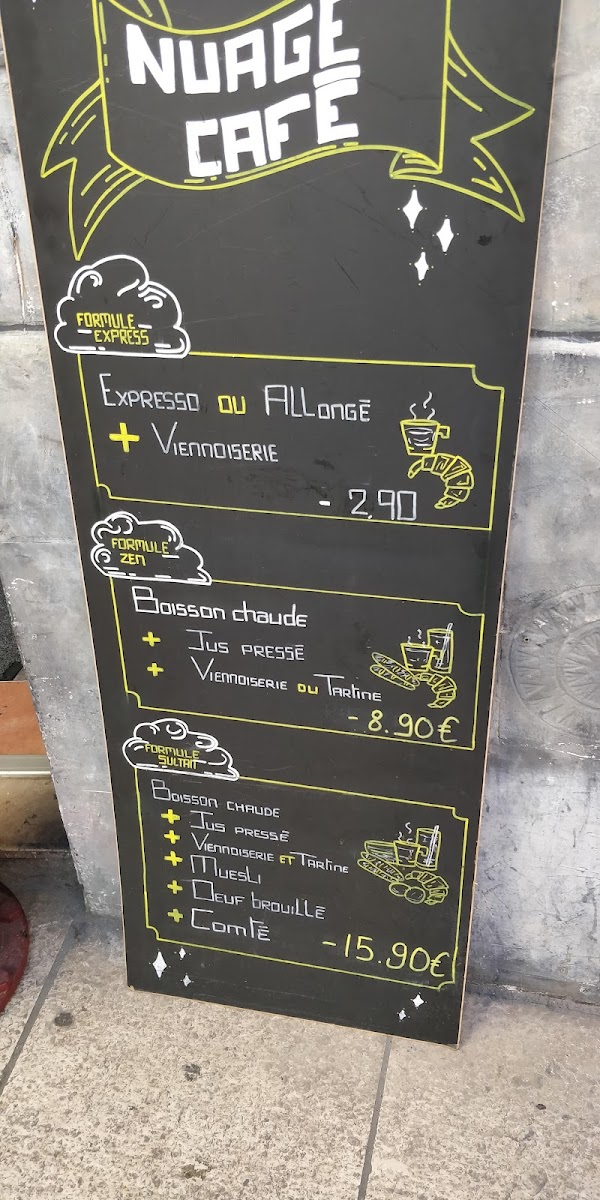 NUAGE
CAFÉ
FORMULE
EXPRESS
EXPRESSO OU ALLONGÉ
+ VIENNOISERIE
- 2,90
FORMULE
ZEN
BOISSON CHAUDE
+ JUS PRESSÉ
+ VIENNOISERIE OU TARTINE
- 8.90€
FORMULE
SULTAN
BOISSON CHAUDE
+ JUS PRESSÉ
+ VIENNOISERIE ET TARTINE
+ MUESLI
+ OEUF BROUILLÉ
+ COMTÉ
- 15.90€